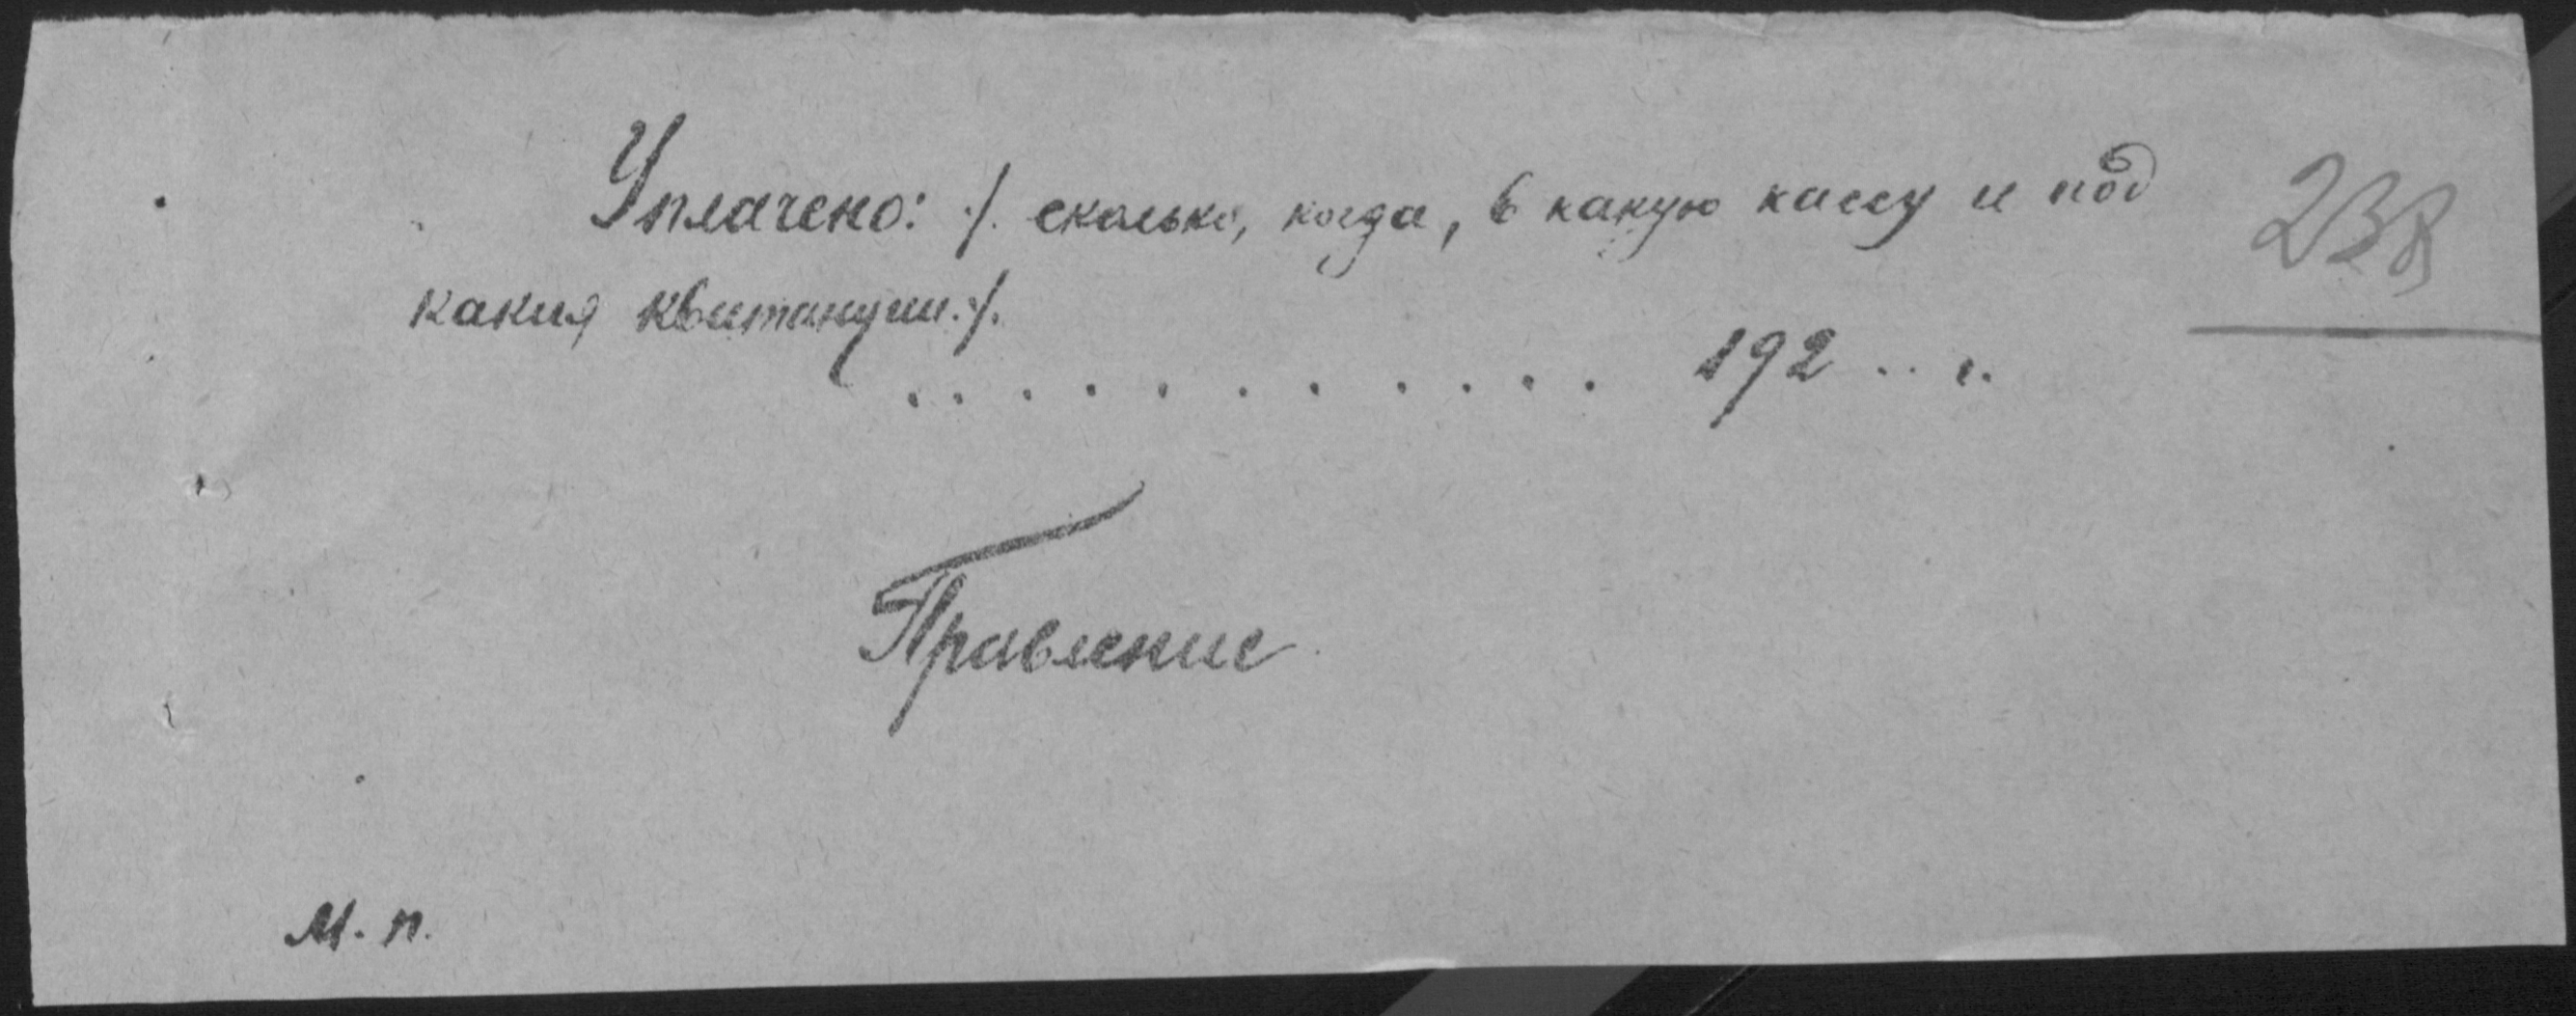 Уплачено: ./. сколько, когда, в какую кассу и под
какия квитанции ./.
. . . . . . . . . . . 192 .. г.
238
Правление
М. п.